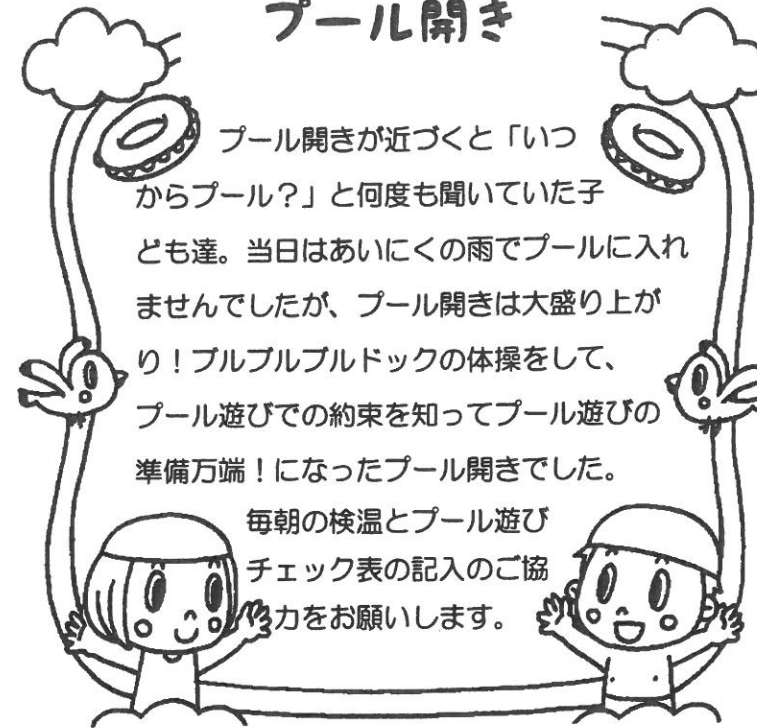 プール開き
プール開きが近づくと「いつ
からプール？」と何度も聞いていた子
ども達。当日はあいにくの雨でプールに入れ
ませんでしたが、プール開きは大盛り上が
り！ブルブルブルドックの体操をして、
プール遊びでの約束を知ってプール遊びの
準備万端！になったプール開きでした。
毎朝の検温とプール遊び
チェック表の記入のご協
力をお願いします。